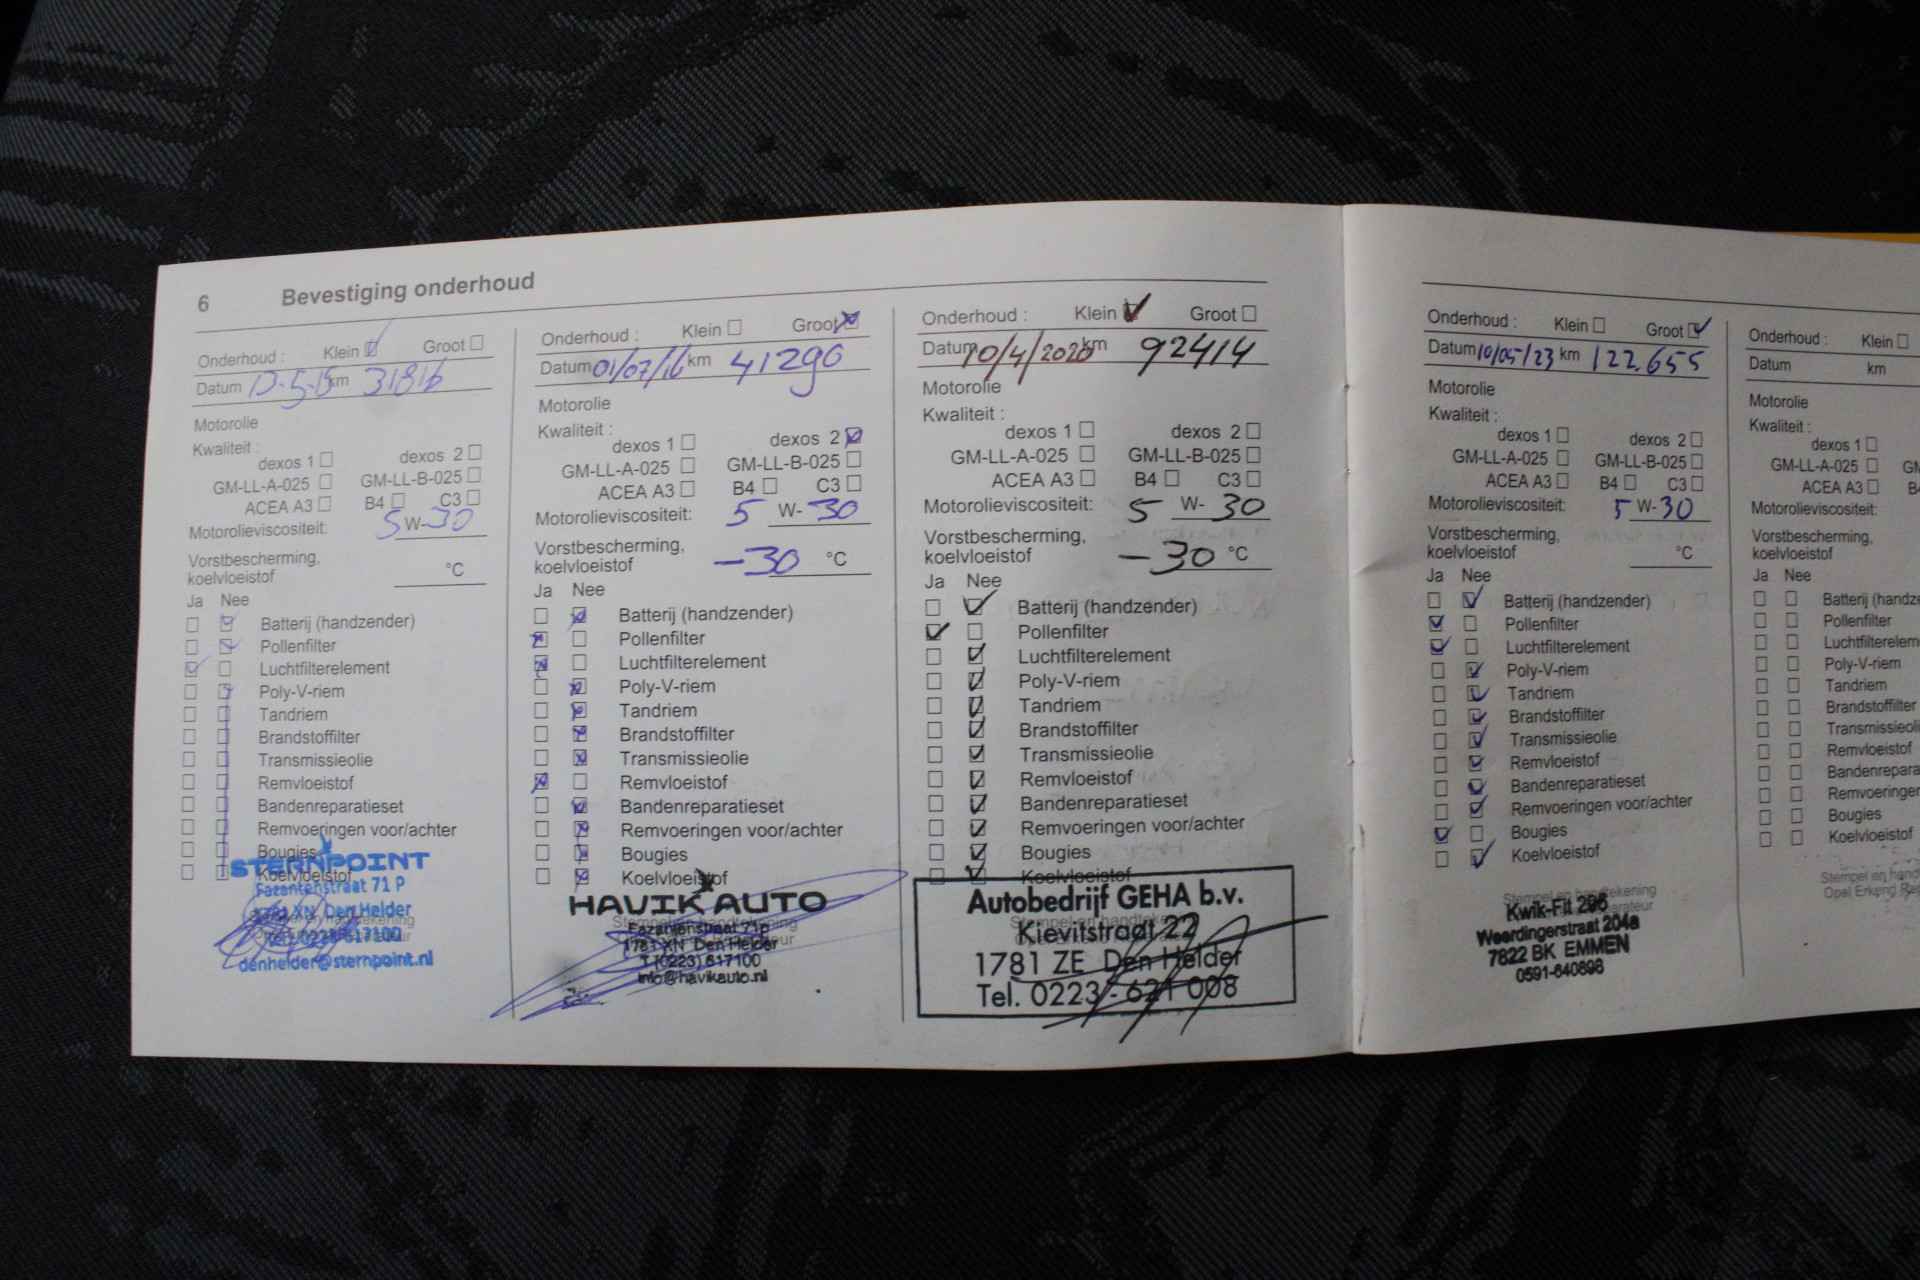 6 Bevestiging onderhoud
Onderhoud : Klein Groot
Datum km 31816
Motorolie
Kwaliteit :
dexos 1 dexos 2
GM-LL-A-025 GM-LL-B-025
ACEA A3 B4 C3
Motorolieviscositeit: 5 W-30
Vorstbescherming,
koelvloeistof °C
Ja Nee
Batterij (handzender)
Pollenfilter
Luchtfilterelement
Poly-V-riem
Tandriem
Brandstoffilter
Transmissieolie
Remvloeistof
Bandenreparatieset
Remvoeringen voor/achter
Bougies
Koelvloeistof
STERNPOINT
Fazantenstraat 71 P
1781 XN Den Helder
Tel. 0223-617100
denhelder@sternpoint.nl
Onderhoud : Klein Groot
Datum 01/07/16 km 41290
Motorolie
Kwaliteit :
dexos 1 dexos 2
GM-LL-A-025 GM-LL-B-025
ACEA A3 B4 C3
Motorolieviscositeit: 5 W-30
Vorstbescherming,
koelvloeistof -30 °C
Ja Nee
Batterij (handzender)
Pollenfilter
Luchtfilterelement
Poly-V-riem
Tandriem
Brandstoffilter
Transmissieolie
Remvloeistof
Bandenreparatieset
Remvoeringen voor/achter
Bougies
Koelvloeistof
HAVIK AUTO
Stempel en handtekening
Fazantenstraat 71p
1781 XN Den Helder
T (0223) 617100
info@havikauto.nl
Onderhoud : Klein Groot
Datum 10/4/2020 km 92414
Motorolie
Kwaliteit :
dexos 1 dexos 2
GM-LL-A-025 GM-LL-B-025
ACEA A3 B4 C3
Motorolieviscositeit: 5 W-30
Vorstbescherming,
koelvloeistof -30 °C
Ja Nee
Batterij (handzender)
Pollenfilter
Luchtfilterelement
Poly-V-riem
Tandriem
Brandstoffilter
Transmissieolie
Remvloeistof
Bandenreparatieset
Remvoeringen voor/achter
Bougies
Koelvloeistof
Autobedrijf GEHA b.v.
Kievitstraat 22
1781 ZE Den Helder
Tel. 0223 - 621 008
Onderhoud : Klein Groot
Datum 10/05/23 km 122.655
Motorolie
Kwaliteit :
dexos 1 dexos 2
GM-LL-A-025 GM-LL-B-025
ACEA A3 B4 C3
Motorolieviscositeit: 5 W-30
Vorstbescherming,
koelvloeistof °C
Ja Nee
Batterij (handzender)
Pollenfilter
Luchtfilterelement
Poly-V-riem
Tandriem
Brandstoffilter
Transmissieolie
Remvloeistof
Bandenreparatieset
Remvoeringen voor/achter
Bougies
Koelvloeistof
Stempel en handtekening
Kwik-Fit 296
Weerdingerstraat 204a
7822 BK EMMEN
0591-640898
Onderhoud : Klein
Datum km
Motorolie
Kwaliteit :
dexos 1
GM-LL-A-025 GM
ACEA A3 B4
Motorolieviscositeit:
Vorstbescherming,
koelvloeistof
Ja Nee
Batterij (handze
Pollenfilter
Luchtfilterelem
Poly-V-riem
Tandriem
Brandstoffilter
Transmissieoli
Remvloeistof
Bandenrepara
Remvoeringen
Bougies
Koelvloeistof
Stempel en hand
Opel Erkend Rep